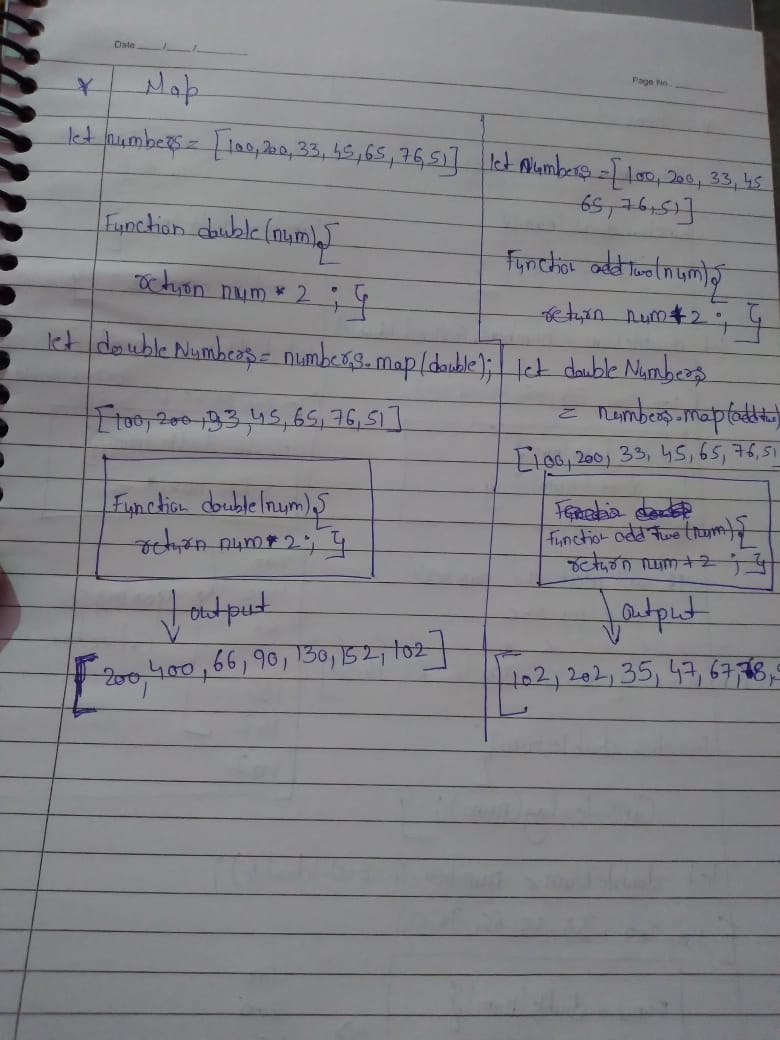 Date __/__/____
Page No. ____
* Map
let numbers = [100,200,33,45,65,76,51]
Function double(num){
return num * 2 ; }
let double Numbers = numbers.map(double);
[100, 200, 33, 45, 65, 76, 51]
Function double(num){
return num * 2 ; }
↓ output
[200, 400, 66, 90, 130, 152, 102]
let Numbers = [100, 200, 33, 45
65, 76, 51]
Function add Two(num){
return num + 2 ; }
let double Numbers
= numbers.map(addtwo)
[100, 200, 33, 45, 65, 76, 51
Function add Two (num){
return num + 2 ; }
↓ output
[102, 202, 35, 47, 67, 78,